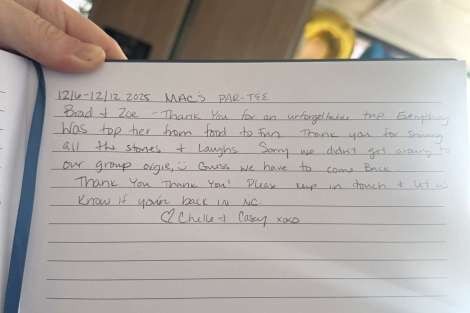 12/6-12/12 2025 MAC'S PAR-TEE
Brad + Zoe - Thank You for an unforgettable trip Everything
Was top tier from food to fun. Thank you for sharing
all the stories + laughs. Sorry we didn't get around to
our group :) Guess we have to come Back.
Thank You Thank You! Please keep in touch + let us
Know if you're back in NC
♡ Chelle + Casey xoxo